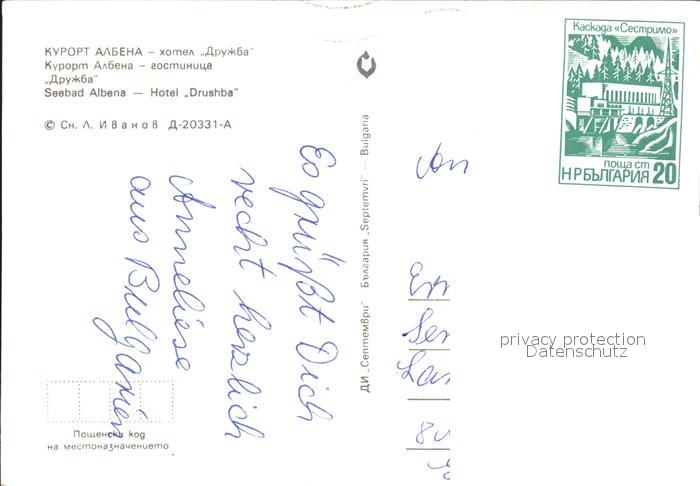 КУРОРТ АЛБЕНА – хотел „Дружба“
Курорт Албена – гостиница
„Дружба“
Seebad Albena — Hotel „Drushba“
© Сн. Л. Иванов Д-20331-А
Es grüßt Dich
recht herzlich
Anneliese
aus Bulgarien
Пощенски код
на местоназначението
ДИ „Септември“ България „Septemvri“ — Bulgaria
Каскада «Сестримо»
поща ст
НР БЪЛГАРИЯ 20
An
privacy protection
Datenschutz